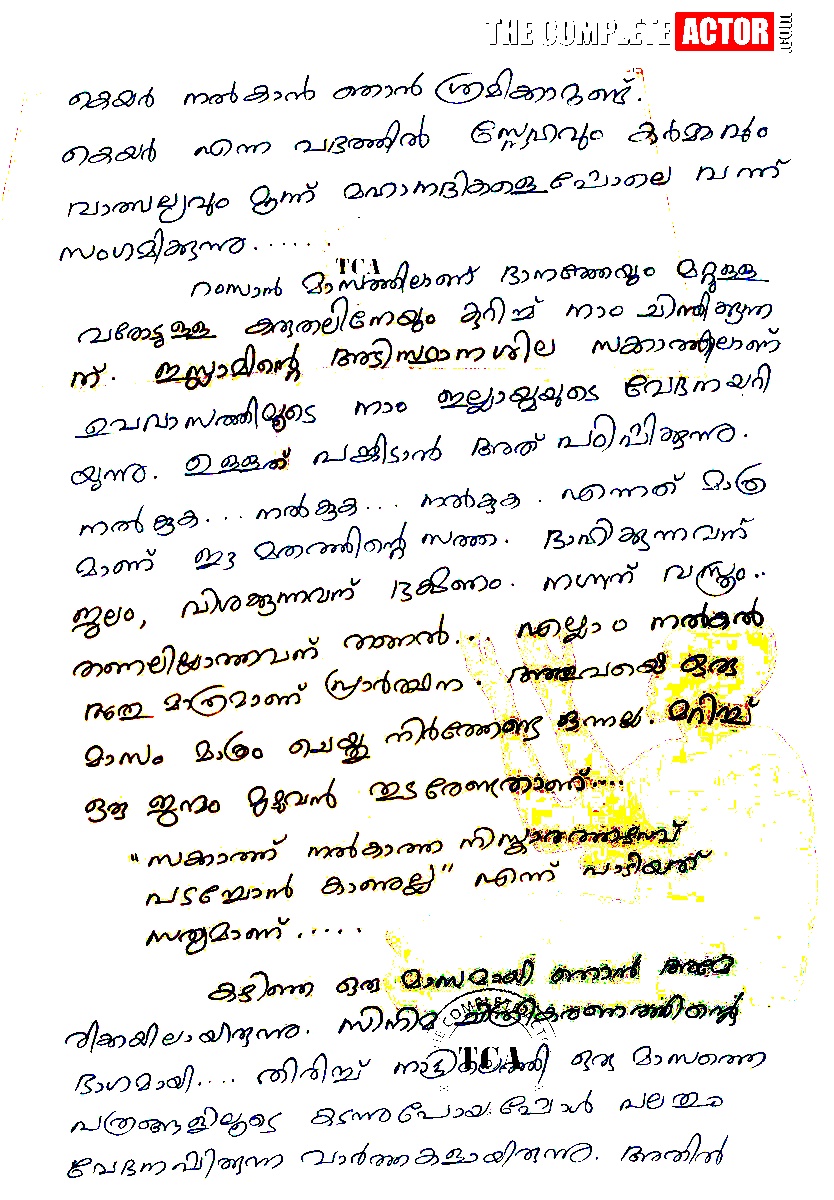 THE COMPLETE ACTOR
കെയർ നൽകാൻ ഞാൻ ശ്രമിക്കാറുണ്ട്.
കെയർ എന്ന പദത്തിൽ സ്നേഹവും കർമ്മവും
വാത്സല്യവും മൂന്ന് മഹാനദികളെപ്പോലെ വന്ന്
സംഗമിക്കുന്നു......
TCA
റംസാൻ മാസത്തിലാണ് ദാനത്തേയും മറ്റുള്ള
വരോടുള്ള കരുതലിനേയും കുറിച്ച് നാം ചിന്തിക്കുന്ന
ത്. ഇസ്ലാമിന്റെ അടിസ്ഥാനശില സക്കാത്തിലാണ്
ഉപവാസത്തിലൂടെ നാം ഇല്ലായ്മയുടെ വേദനയറി
യുന്നു. ഉള്ളത് പങ്കിടാൻ അത് പഠിപ്പിക്കുന്നു.
നൽകുക... നൽകുക... നൽകുക. എന്നത് മാത്ര
മാണ് ഈ മതത്തിന്റെ സത്ത. ദാഹിക്കുന്നവന്
ജലം, വിശക്കുന്നവന് ഭക്ഷണം. നഗ്നന് വസ്ത്രം..
തണലില്ലാത്തവന് തണൽ... എല്ലാം നൽകൽ
മാത്രമാണ് പ്രാർത്ഥന. ഒരു
മാസം മാത്രം ചെയ്തു നിർത്തേണ്ട ഒന്നല്ല. മറിച്ച്
ഒരു ജന്മം മുഴുവൻ തുടരേണ്ടതാണ്....
"സക്കാത്ത് നൽകാത്ത
പടച്ചോൻ കാണൂല്ല" എന്ന് പാടിയത്
സത്യമാണ്.....
കഴിഞ്ഞ ഒരു മാസമായി ഞാൻ അമേ
രിക്കയിലായിരുന്നു. സിനിമ ചിത്രീകരണത്തിന്റെ
ഭാഗമായി.... തിരിച്ച് നാട്ടിലെത്തി ഒരു മാസത്തെ
TCA
പത്രങ്ങളിലൂടെ കടന്നുപോയപ്പോൾ പലതും
വേദനപ്പിക്കുന്ന വാർത്തകളായിരുന്നു. അതിൽ